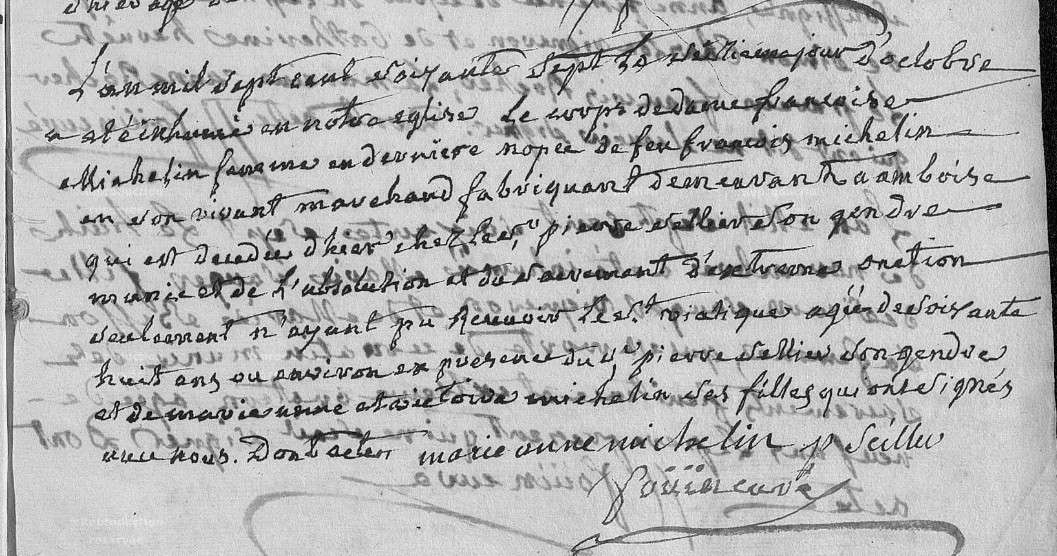 d'hier agé de
L'an mil sept cent soixante sept le setiemejour d'octobre
a eté inhumé en notre eglise le corps de dame francoise
Michelin femme en derniere nopce de feu francois michelin
en son vivant marchand fabriquant demeurant a amboise
qui est decedée d'hier chez le sr pierre sellier son gendre
munie et de l'absolution et du sacrement d'extreme onction
seulement n'ayant pu recevoir le st viatique agée de soixante
huit ans ou environ en presence du sr pierre sellier son gendre
et de marie anne et victoire michelin ses filles qui ont signés
avec nous. Dont acte marie anne michelin p Seillier
curé